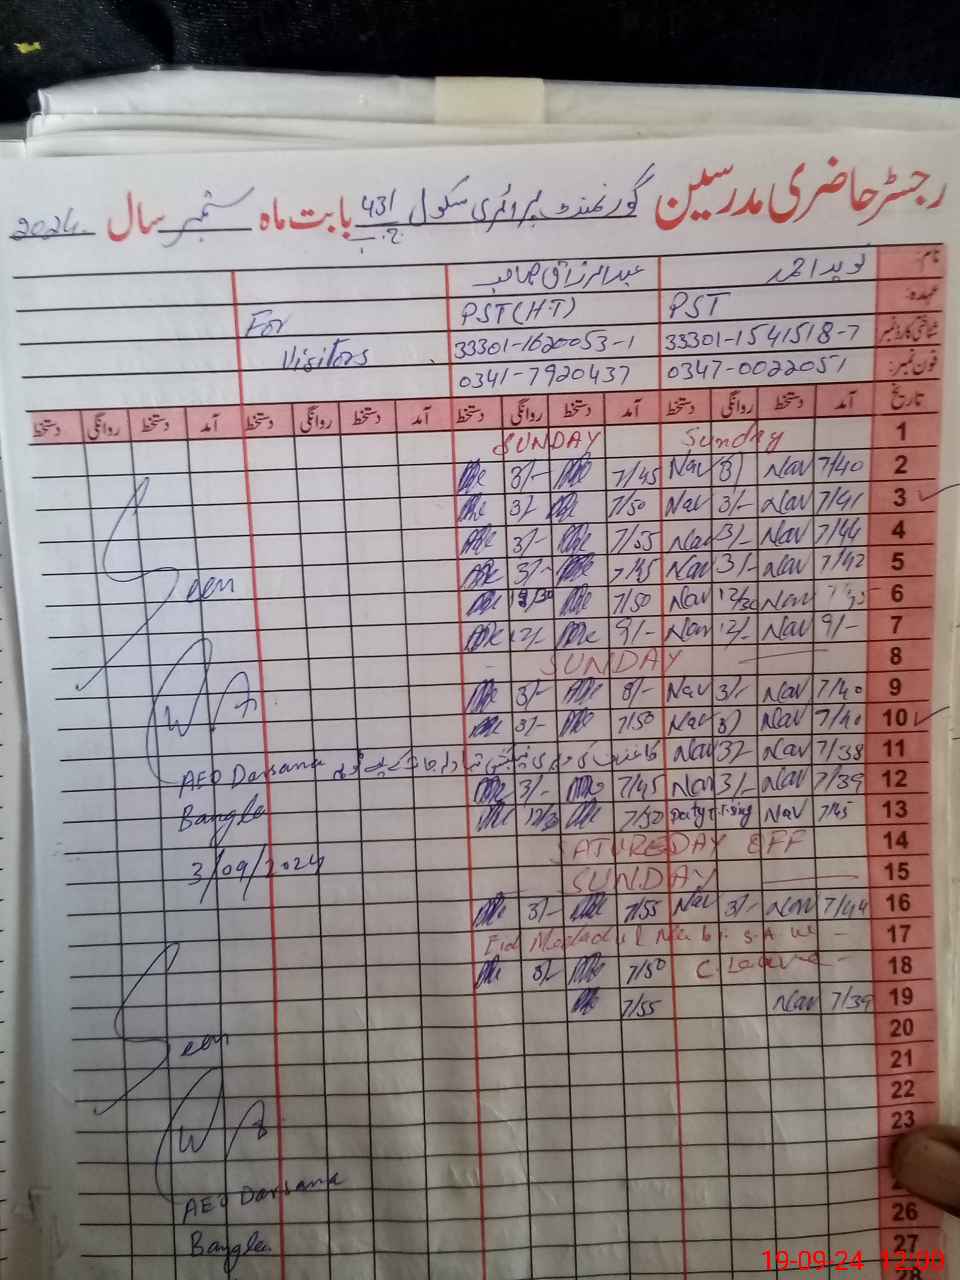 رجسٹر حاضری مدرسین گورنمنٹ پرائمری سکول 431 ج.ب بابت ماہ ستمبر سال 2024
نام: نوید احمد عبدالرزاق صاحب
عہدہ: PST PST(H.T) For
شناختی کارڈ نمبر 33301-1541518-7 33301-1620053-1 Visitors
فون نمبر: 0347-0022051 0341-7920437
تاریخ آمد دستخط روانگی دستخط آمد دستخط روانگی دستخط آمد دستخط روانگی دستخط آمد دستخط روانگی دستخط
1 Sunday SUNDAY
2 7/40 Nav 3/ Nav 7/45 3/-
3 7/41 Nav 3/- Nav 7/50 3/-
4 7/44 Nav 3/- Nav 7/55 3/-
5 7/42 Nav 3/- Nav 7/45 3/-
Seen
6 Nav 12/30 Nav 7/50 12/30
7 9/- Nav 12/- Nav 9/- 12/-
8 SUNDAY
9 7/40 Nav 3/- Nav 8/- 3/-
10 7/40 Nav 3/ Nav 7/50 3/-
11 7/38 Nav 3/- Nav
AEO Darsana
12 7/39 Nav 3/- Nav 7/45 3/-
Bangla
13 7/45 Nav 7/50 12/30
14 SATUREDAY OFF
3/09/2024
15 SUNDAY
16 7/44 Nav 3/- Nav 7/55 3/-
17 Eid Meeladul Nabi S.A.W
18 C. Leave 7/50 3/-
19 7/39 Nav 7/55
20
Seen
21
22
23
AEO Darsana
26
Bangla
27
28
19-09-24 12:00